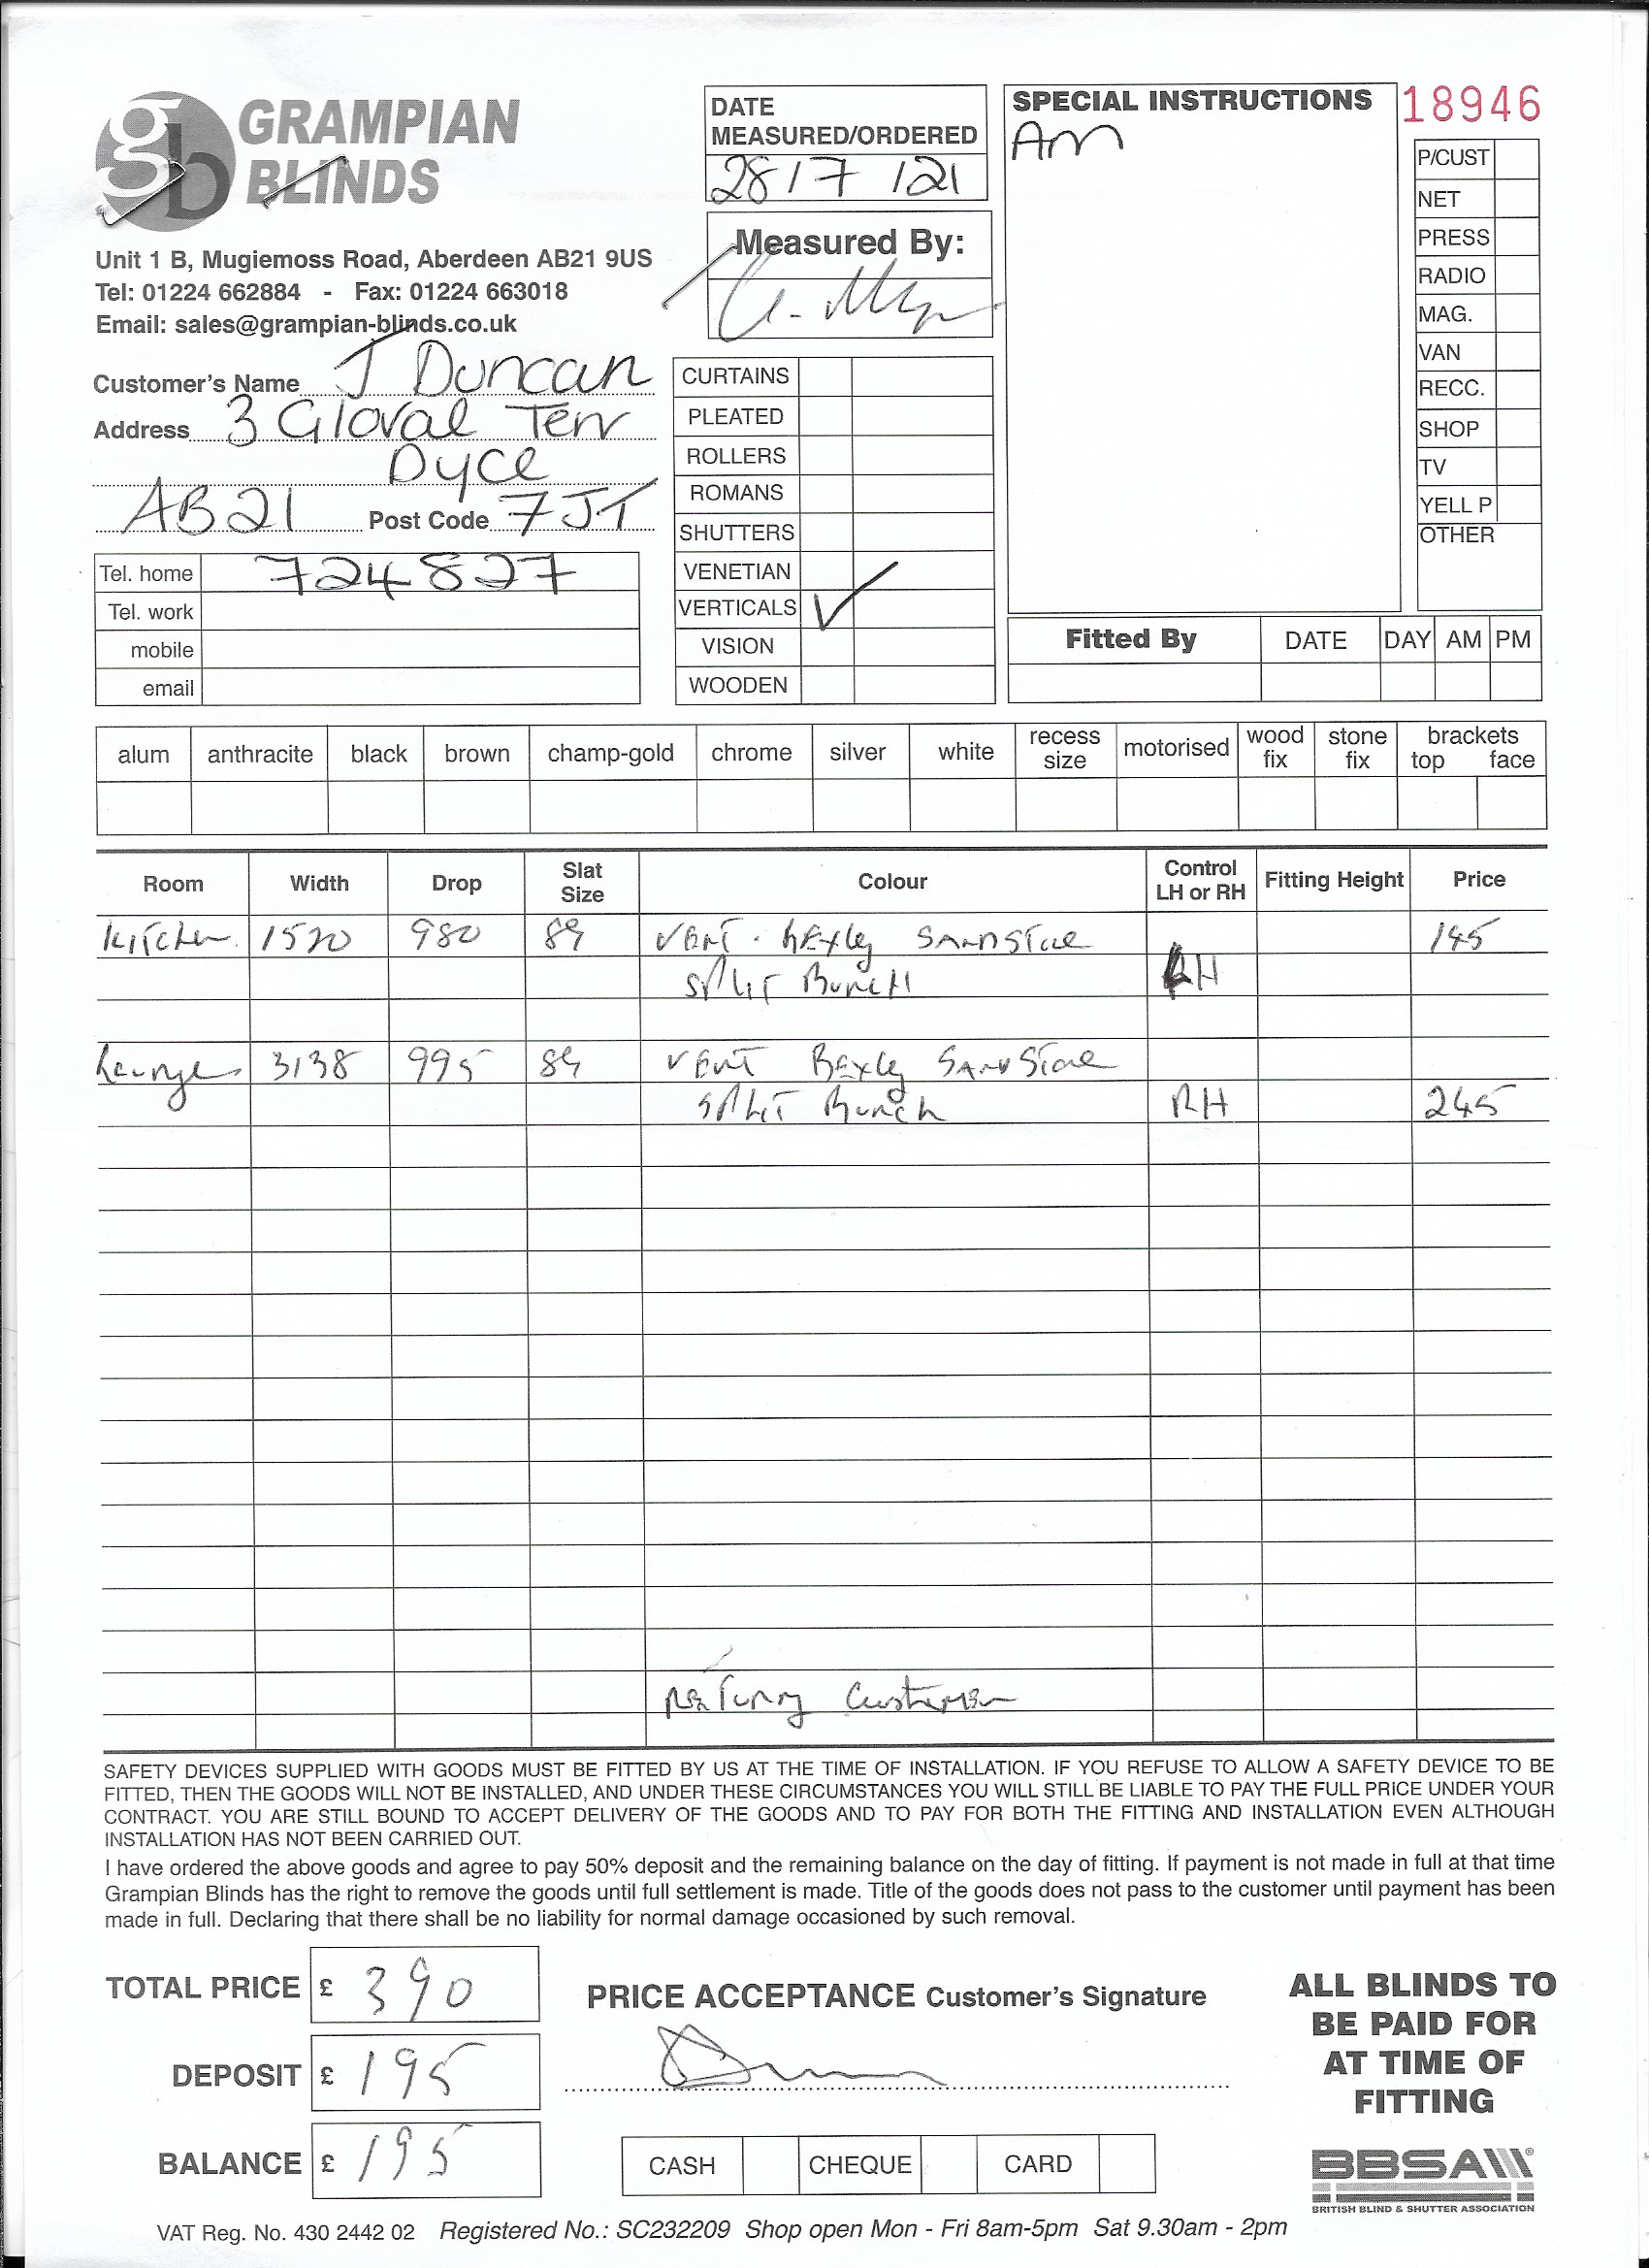 gb GRAMPIAN
BLINDS
Unit 1 B, Mugiemoss Road, Aberdeen AB21 9US
Tel: 01224 662884 - Fax: 01224 663018
Email: sales@grampian-blinds.co.uk
Customer's Name J Duncan
Address 3 Gloval Terr
Dyce
AB21 Post Code 7JT
Tel. home 724827
Tel. work
mobile
email
DATE
MEASURED/ORDERED
28/7/21
Measured By:
CURTAINS
PLEATED
ROLLERS
ROMANS
SHUTTERS
VENETIAN
VERTICALS ✓
VISION
WOODEN
SPECIAL INSTRUCTIONS
AM
18946
P/CUST
NET
PRESS
RADIO
MAG.
VAN
RECC.
SHOP
TV
YELL P
OTHER
Fitted By DATE DAY AM PM
alum anthracite black brown champ-gold chrome silver white recess size motorised wood fix stone fix brackets top face
Room Width Drop Slat Size Colour Control LH or RH Fitting Height Price
Kitchen 1520 980 89 VERT. BExley SANDStone 145
SPLIT BuncH RH
Lounge 3138 995 89 VERT BExley SANDStone
SPLIT Bunch RH 245
Customer
SAFETY DEVICES SUPPLIED WITH GOODS MUST BE FITTED BY US AT THE TIME OF INSTALLATION. IF YOU REFUSE TO ALLOW A SAFETY DEVICE TO BE
FITTED, THEN THE GOODS WILL NOT BE INSTALLED, AND UNDER THESE CIRCUMSTANCES YOU WILL STILL BE LIABLE TO PAY THE FULL PRICE UNDER YOUR
CONTRACT. YOU ARE STILL BOUND TO ACCEPT DELIVERY OF THE GOODS AND TO PAY FOR BOTH THE FITTING AND INSTALLATION EVEN ALTHOUGH
INSTALLATION HAS NOT BEEN CARRIED OUT.
I have ordered the above goods and agree to pay 50% deposit and the remaining balance on the day of fitting. If payment is not made in full at that time
Grampian Blinds has the right to remove the goods until full settlement is made. Title of the goods does not pass to the customer until payment has been
made in full. Declaring that there shall be no liability for normal damage occasioned by such removal.
TOTAL PRICE £ 390
DEPOSIT £ 195
BALANCE £ 195
PRICE ACCEPTANCE Customer's Signature
CASH CHEQUE CARD
ALL BLINDS TO
BE PAID FOR
AT TIME OF
FITTING
BBSA®
BRITISH BLIND & SHUTTER ASSOCIATION
VAT Reg. No. 430 2442 02 Registered No.: SC232209 Shop open Mon - Fri 8am-5pm Sat 9.30am - 2pm